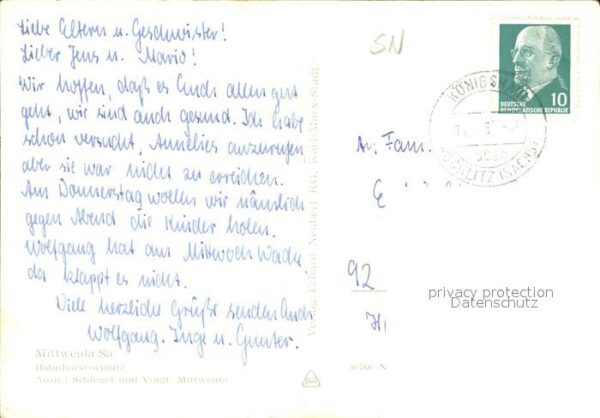 Liebe Eltern u. Geschwister!
Lieber Jens u. Mario!
Wir hoffen, daß es Euch allen gut
geht, wir sind auch gesund. Ich habe
schon versucht, Annelies anzurufen
aber sie war nicht zu erreichen.
Am Donnerstag wollen wir nämlich
gegen Abend die Kinder holen.
Wolfgang hat am Mittwoch Wache
da klappt es nicht.
Viele herzliche Grüße senden Euch
Wolfgang, Inge u. Günter.
Mittweida Sa.
Bahnhofsvorplatz
Aufn.: Schlegel und Voigt, Mittweida
Verlag Erhard Neubert KG, Karl-Marx-Stadt
SN
DEUTSCHE
DEMOKRATISCHE REPUBLIK
10
An Fam.
92
privacy protection
Datenschutz